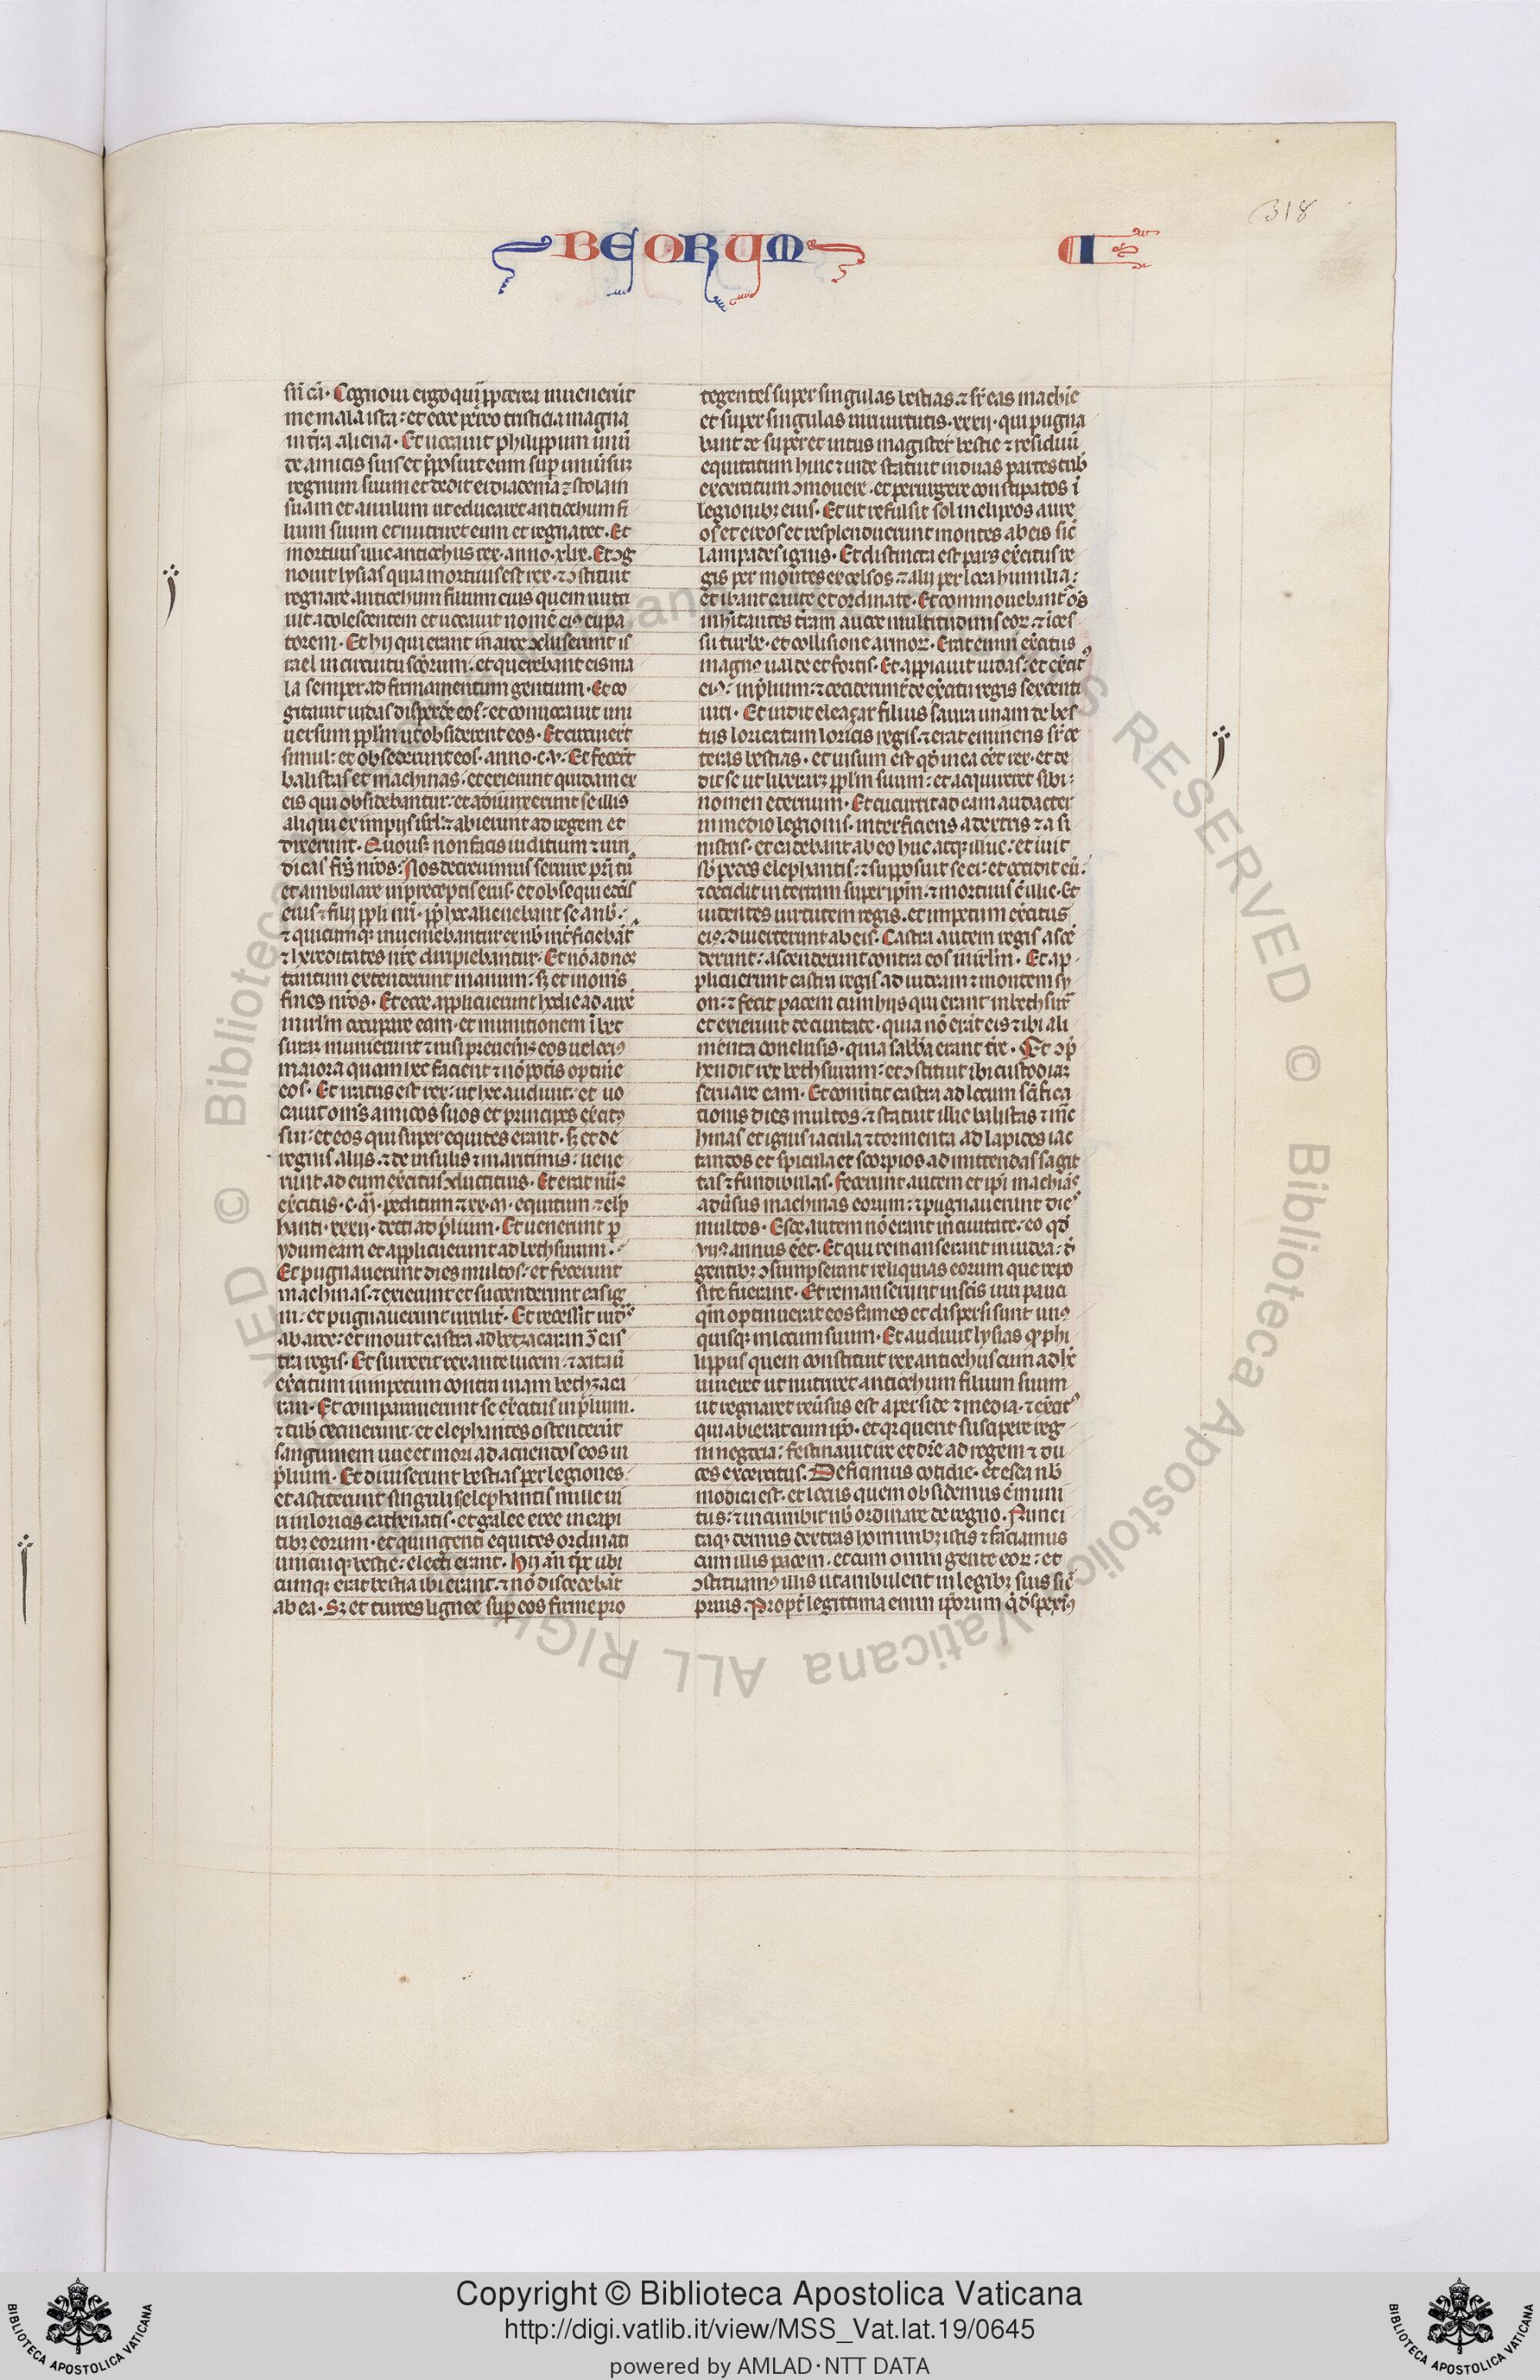 318
BEORUM
I
sñ cā. Cognoui ergo quī pp̄terea inuenerūt
me mala ista: et ecce pereo tristicia magna
in tr̄a aliena. Et uocauit philippum unū
de amicis suis et p̄posuit eum sup uniūsuȝ
regnum suum et dedit ei diadema ⁊ stolam
suam et anulum ut educaret antiochum fi
lium suum et nutriret eum et regnaret. Et
mortuus illic antiochus rex. anno. xlix. Et ↄg
nouit lysias quia mortuus est rex. ⁊ ↄstituit
regnare antiochum filium eius quem nutri
uit adolescentem et uocauit nomē ei᷒ eupa
torem. Et hij qui erant in arce ↄcluserunt is
rael in circuitu scōrum. et querebant eis ma
la semper ad firmamentum gentium. Et co
gitauit iudas disperde eos: et conuocauit uni
uersum pp̄lm ut obsiderent eos. Et cōuenert̄
simul: et obsederunt eos. anno. c. v. Et fecert̄
balistas et machinas. et exierunt quidam ex
eis qui obsidebantur: et adiunxerunt se illis
aliqui ex impijs isrl: ⁊ abierunt ad regem et
dixerunt. Quousqȝ non facis iuditium ⁊ uin
dicas frs̄ nr̄os: Nos decreuimus seruire pr̄i tū
et ambulare in preceptis eius. et obsequi edcīs
eius ⁊ filij pp̄li nr̄i. pp̄ hec alienebant se a nb̄.
⁊ quicumqȝ inueniebantur ex nb̄ int̄ficiebāt
⁊ hereditates nr̄e diripiebantur. Et nō ad nos
tantum extenderunt manum: sȝ et in omīs
fines nr̄os. Et ecce applicuerunt hodie ad arcē
in irl̄m occupare eam. et munitionem ī bet
suraȝ munierunt ⁊ nisi preuenīs eos uelocī᷒
maiora quam hec facient ⁊ nō potīs optinē
eos. Et iratus est rex: ut hec audiuit: et uo
cauit omīs amicos suos et principes ex̄cit᷒
sui: et eos qui super equites erant. sȝ et de
regnis alijs. ⁊ de insulis ⁊ maritimis: uene
runt ad eum ex̄citus ↄducticius. Et erat nūs
ex̄citus. c. M. peditum ⁊ xx. M. equitum ⁊ elep̄
hanti. xxxij. docti ad p̄lium. Et uenerunt p̄
ydumeam et applicuerunt ad bethsuram.
Et pugnauerunt dies multos: et fecerunt
machinas. ⁊ exierunt et succenderunt eas ig
ni: et pugnauerunt uirilit̄. Et recessit iudas
ab arce: et mouit castra ad betzacaram ↄ̄ cas
tra regis. Et surrexit rex ante lucem. ⁊ ↄcitauit
ex̄citum in impetum contra uiam bethzaca
ram. Et comparauerunt se ex̄citus in p̄lium.
⁊ tub̄ cecinerunt: et elephantes ostenderūt
sanguinem uue et mori ad acuendos eos in
p̄lium. Et diuiserunt bestias per legiones
et astiterunt singulis elephantis mille ui
ri in loricis cathenatis. et galee eree in capi
tibȝ eorum. et quingenti equites ordinati
unicuiqȝ bestie: electi erant. Hij añ tp̄r ubi
cunqȝ erat bestia ibi erant. ⁊ nō discedebāt
ab ea. Sȝ et turres lignee sup eos firme pro
tegentes super singulas bestias. ⁊ sr̄ eas machīe
et super singulas uiri uirtutis. xxxij. qui pugna
bant de super et intus magister bestie ⁊ residuū
equitatum hinc ⁊ inde statuit in duas partes tub̄
exercitum ↄmouere. et perurgere constipatos ī
legionibȝ eius. Et ut refulsit sol in clipeos aure
os et ereos et resplenduerunt montes ab eis sic̄
lampades ignis. Et distincta est pars ex̄citus re
gis per montes excelsos. ⁊ alij per loca humilia:
et ibant caute et ordinate. Et commouebant̄ oēs
inhītantes tr̄am a uoce multitudinis eoꝝ. ⁊ īces
su turbe. et collisione armoꝝ. Erat enim ex̄citus
magn᷒ ualde et fortis. Et appiauit iudas: et ex̄cit᷒
ei᷒: in p̄lium: ⁊ ceciderunt de ex̄citu regis sexcenti
uiri. Et uidit eleaçar filius saura unam de bes
tiis loricatam loricis regis. ⁊ erat eminens sr̄ ce
teras bestias. et uisum est qd̄ in ea eēt rex. et de
dit se ut liberaȝ pp̄lm suum: et acquireret sibi:
nomen eternum. Et cucurrit ad eam audacter
in medio legionis. interficiens a dextris ⁊ a si
nistris. et cadebant ab eo huc atqȝ illuc: et iuit
sb̄ pedes elephantis: ⁊ supposuit se ei: et occidit eū.
⁊ cecidit in terram super ipm̄. ⁊ mortuus ē illic. Et
uidentes uirtutem regis. et impetum ex̄citus
ei᷒: diuerterunt ab eis. Castra autem regis ascē
derunt: ascenderunt contra eos in irl̄m. Et ap
plicuerunt castra regis ad iudeam ⁊ montem sy
on: ⁊ fecit pacem cum hijs qui erant in bethsura
et exierunt de ciuitate. quia nō erāt eis ⁊ ibi ali
menta conclusis. quia sabb̄a erant tr̄e. Et ↄp̄
hendit rex bethsuram: et ↄstituit ibi custodiaȝ
seruare eam. Et conūtit castra ad locum sc̄ifica
tionis dies multos. ⁊ statuit illic balistas ⁊ mac̄
hinas et ignis iacula ⁊ tormenta ad lapides iac
tandos et spicula et scorpios ad mittendas sagit
tas ⁊ fundibulas. Fecerunt autem et ipi machīas
adūsus machinas eorum: ⁊ pugnauerunt dies
multos. Esce autem nō erant in ciuitate: eo qd̄
vij᷒ annus eēt. Et qui remanserant in iudea: d̄
gentibȝ ↄsumpserant reliquias eorum que repo
site fuerant. Et remanserunt in scīs uiri pauci
qm̄ optinuerat eos fames et dispersi sunt un᷒
quisqȝ in locum suum. Et audiuit lysias qd̄ phi
lippus quem constituit rex antiochus cum adhc̄
uiueret ut nutriret antiochum filium suum
ut regnaret reūsus est a perside ⁊ media. ⁊ ex̄cit᷒
qui abierat cum ipō. et qȝ querit suscipere reg
ni negocia: festinauit ire et dic̄e ad regem ⁊ du
ces excercitus. Deficimus cotidie. et esca nb̄
modica est. et locus quem obsidemus ē muni
tus: ⁊ incumbit nb̄ ordinare de regno. Nunc i
taqȝ demus dextras hominibȝ istis ⁊ faciamus
cum illis pacem. et cum omni gente eoꝝ: et
ↄstituam᷒ illis ut ambulent in legibȝ suis sic̄
prius. Propt̄ legittima enim ip̄orum q̄ despexi᷒
Copyright © Biblioteca Apostolica Vaticana
http://digi.vatlib.it/view/MSS_Vat.lat.19/0645
powered by AMLAD·NTT DATA